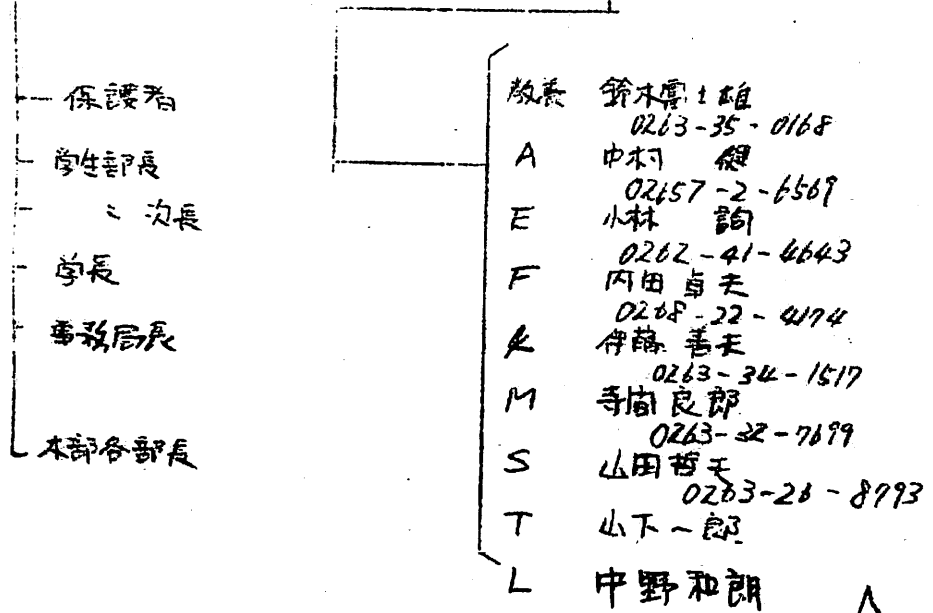 保護者
学生部長
〃 次長
学長
事務局長
本部各部長
教養 鈴木富士雄
0263-35-0168
A 中村 健
02657-2-6569
E 小林 詢
0262-41-4643
F 内田貞夫
0268-22-4174
K 伊藤善夫
0263-34-1517
M 寺間良郎
0263-32-7699
S 山田哲夫
0263-26-8793
T 山下一郎
L 中野和朗